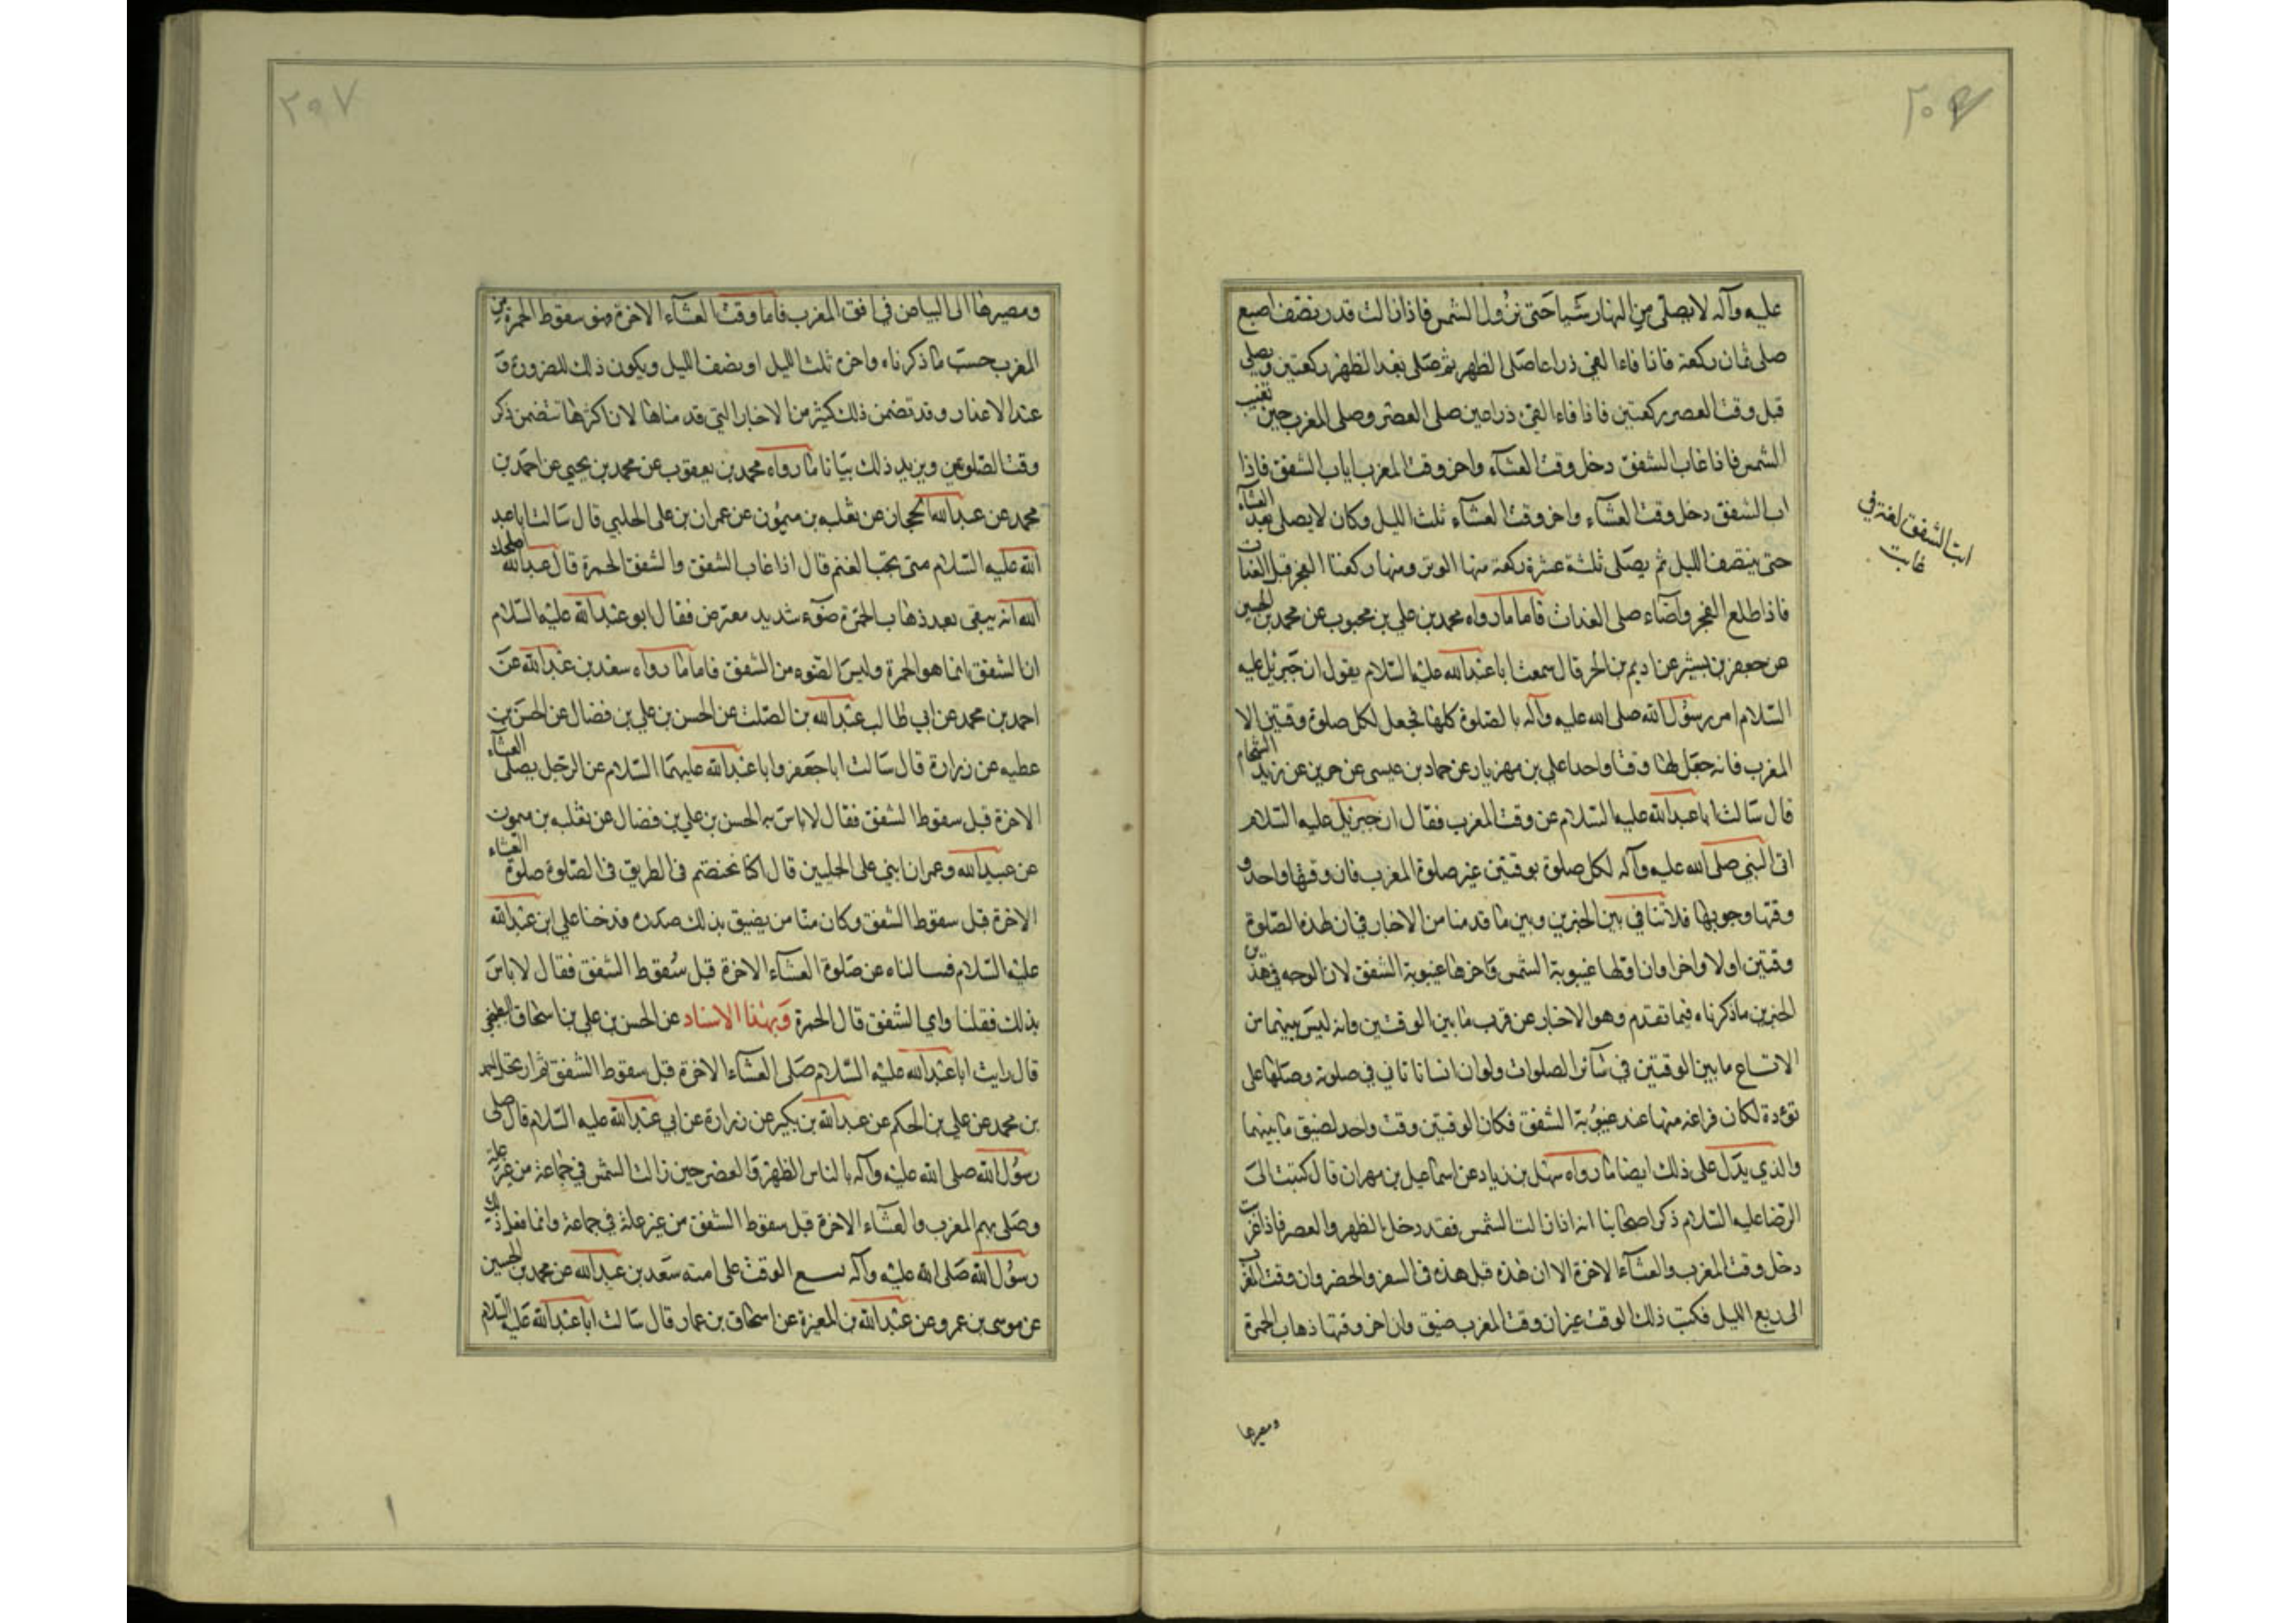 عليه وآله لا يصلى من النهار شيا حتى تزول الشمس فاذا زالت قدر نصف اصبع
صلى ثمان ركعة فاذا فاءا الفئ ذراعا صلى الظهر ثم صلى بعد الظهر ركعتين ويصلى
قبل وقت العصر ركعتين فاذا فاءا الفئ ذراعين صلى العصر وصلى المغرب حين تغيب
الشمس فاذا غاب الشفق دخل وقت العشاء واخر وقت المغرب اياب الشفق فاذا
اب الشفق دخل وقت العشاء واخر وقت العشاء ثلث الليل وكان لا يصلى بعد العشاء
حتى ينتصف الليل ثم يصلى ثلثة عشرة ركعة منها الوتر ومنها ركعتا الفجر قبل الغداة
فاذا طلع الفجر واضاء صلى الغداة فاما ما رواه محمد بن علي بن محبوب عن محمد بن الحسين
عن جعفر بن بشير عن اديم بن الحر قال سمعت ابا عبد الله عليه السلام يقول ان جبرئيل عليه
السلام امر رسول الله صلى الله عليه وآله بالصلوة كلها فجعل لكل صلوة وقتين الا
المغرب فانه جعل لها وقتا واحدا علي بن مهزيار عن حماد بن عيسى عن حريز عن زيد الشحام
قال سالت ابا عبد الله عليه السلام عن وقت المغرب فقال ان جبرئيل عليه السلام
اتى النبي صلى الله عليه وآله لكل صلوة بوقتين غير صلوة المغرب فان وقتها واحد و
وقتها وجوبها فلا تنافي بين الخبرين وبين ما قدمنا من الاخبار في ان لهذه الصلوة
وقتين اولا واخرا وان اولها غيبوبة الشمس واخرها غيبوبة الشفق لان الوجه في هذين
الخبرين ما ذكرناه فيما تقدم وهو الاخبار عن قرب ما بين الوقتين وانه ليس بينهما من
الاتساع ما بين الوقتين في سائر الصلوات ولو ان انسانا تانى في صلوته وصلها على
تؤدة لكان فراغه منها عند غيبوبة الشفق فكان الوقتين وقت واحد لضيق ما بينهما
والذي يدل على ذلك ايضا ما رواه سهل بن زياد عن اسماعيل بن مهران قال كتبت الى
الرضا عليه السلام ذكر اصحابنا انه اذا زالت الشمس فقد دخل الظهر والعصر فاذا غربت
دخل وقت المغرب والعشاء الاخرة الا ان هذه قبل هذه في السفر والحضر وان وقت المغرب
الى ربع الليل فكتب ذلك الوقت غير ان وقت المغرب ضيق وان اخر وقتها ذهاب الحمرة
ومصيرها
ابت الشفق لغة في
غابت
ومصيرها الى البياض في افق المغرب فاما وقت العشاء الاخرة فهو سقوط الحمرة من
المغرب حسب ما ذكرناه واخره ثلث الليل او نصف الليل ويكون ذلك للضرورة و
عند الاعذار وقد تضمن ذلك كثير من الاخبار التي قدمناها لان اكثرها تتضمن ذكر
وقت الصلوتين ويزيد ذلك بيانا ما رواه محمد بن يعقوب عن محمد بن يحيى عن احمد بن
محمد عن عبد الله الحجال عن ثعلبه بن ميمون عن عمران بن على الحلبي قال سالت ابا عبد
الله عليه السلام متى تجب العتمة قال اذا غاب الشفق والشفق الحمرة قال عبيد الله اصلحك
الله انه يبقى بعد ذهاب الحمرة ضوء شديد معترض فقال ابو عبد الله عليه السلام
ان الشفق انما هو الحمرة وليس الضوء من الشفق فاما ما رواه سعد بن عبد الله عن
احمد بن محمد عن ابي طالب عبد الله بن الصلت عن الحسن بن علي بن فضال عن الحسن بن
عطيه عن زرارة قال سالت ابا جعفر وابا عبد الله عليهما السلام عن الرجل يصلى العشاء
الاخرة قبل سقوط الشفق فقال لا باس به الحسن بن علي بن فضال عن ثعلبه بن ميمون
عن عبيد الله وعمران ابني على الحلبيين قال اكنا نختصم في الطريق في الصلوة صلوة العشاء
الاخرة قبل سقوط الشفق وكان منا من يضيق بذلك صدره فدخلنا على ابن عبد الله
عليه السلام فسالناه عن صلوة العشاء الاخرة قبل سقوط الشفق فقال لا باس
بذلك فقلنا واي الشفق قال الحمرة وبهذا الاسناد عن الحسن بن علي بن اسحاق البطيخى
قال رايت ابا عبد الله عليه السلام صلى العشاء الاخرة قبل سقوط الشفق ثم ارتحل احمد
بن محمد عن علي بن الحكم عن عبد الله بن بكير عن زرارة عن ابي عبد الله عليه السلام قال صلى
رسول الله صلى الله عليه وآله بالناس الظهر والعصر حين زالت الشمس في جماعة من غير علة
وصلى بهم المغرب والعشاء الاخرة قبل سقوط الشفق من غير علة في جماعة وانما فعل ذلك
رسول الله صلى الله عليه وآله ليسع الوقت على امته سعد بن عبد الله عن محمد بن الحسين
عن موسى بن عمر وعن عبد الله بن المغيرة عن اسحاق بن عمار قال سالت ابا عبد الله عليه السلام